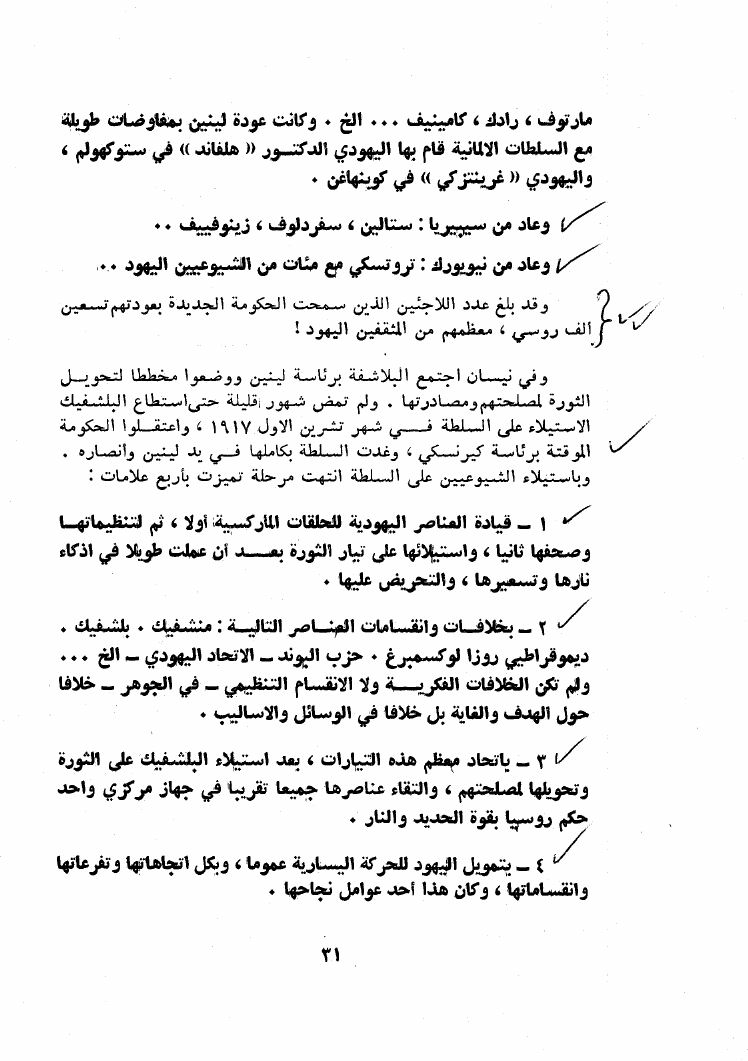 مارتوف ، رادك ، كامينيف ... الخ . وكانت عودة لينين بمفاوضات طويلة
مع السلطات الالمانية قام بها اليهودي الدكتور « هلفاند » في ستوكهولم ،
واليهودي « غرينتزكي » في كوبنهاغن .
وعاد من سيبيريا : ستالين ، سفردلوف ، زينوفييف ..
وعاد من نيويورك : تروتسكي مع مئات من الشيوعيين اليهود ..
وقد بلغ عدد اللاجئين الذين سمحت الحكومة الجديدة بعودتهم تسعين
الف روسي ، معظمهم من المثقفين اليهود !
وفي نيسان اجتمع البلاشفة برئاسة لينين ووضعوا مخططا لتحويل
الثورة لمصلحتهم ومصادرتها . ولم تمض شهور قليلة حتى استطاع البلشفيك
الاستيلاء على السلطة في شهر تشرين الاول ١٩١٧ ، واعتقلوا الحكومة
الموقتة برئاسة كيرنسكي ، وغدت السلطة بكاملها في يد لينين وأنصاره .
وباستيلاء الشيوعيين على السلطة انتهت مرحلة تميزت بأربع علامات :
١ – قيادة العناصر اليهودية للحلقات الماركسية أولا ، ثم لتنظيماتها
وصحفها ثانيا ، واستيلائها على تيار الثورة بعد أن عملت طويلا في اذكاء
نارها وتسعيرها ، والتحريض عليها .
٢ – بخلافات وانقسامات العناصر التالية : منشفيك . بلشفيك .
ديموقراطيي روزا لوكسمبرغ . حزب البوند – الاتحاد اليهودي – الخ ...
ولم تكن الخلافات الفكرية ولا الانقسام التنظيمي – في الجوهر – خلافا
حول الهدف والغاية بل خلافا في الوسائل والاساليب .
٣ – باتحاد معظم هذه التيارات ، بعد استيلاء البلشفيك على الثورة
وتحويلها لمصلحتهم ، والتقاء عناصرها جميعا تقريبا في جهاز مركزي واحد
حكم روسيا بقوة الحديد والنار .
٤ – بتمويل اليهود للحركة اليسارية عموما ، وبكل اتجاهاتها وتفرعاتها
وانقساماتها ، وكان هذا أحد عوامل نجاحها .
٣١